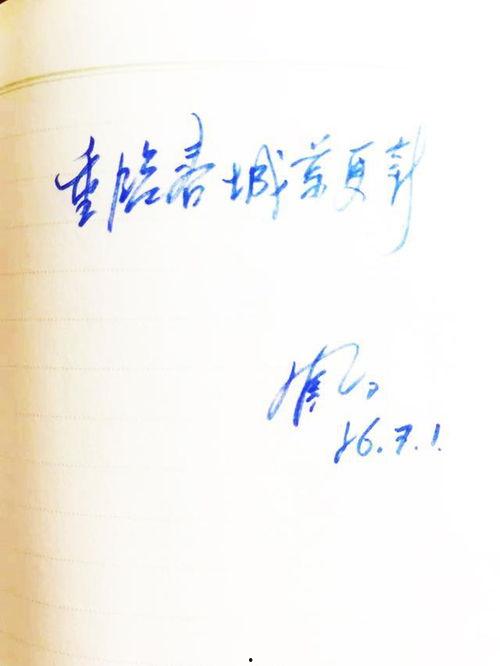 重临春城景更新
16.7.1.